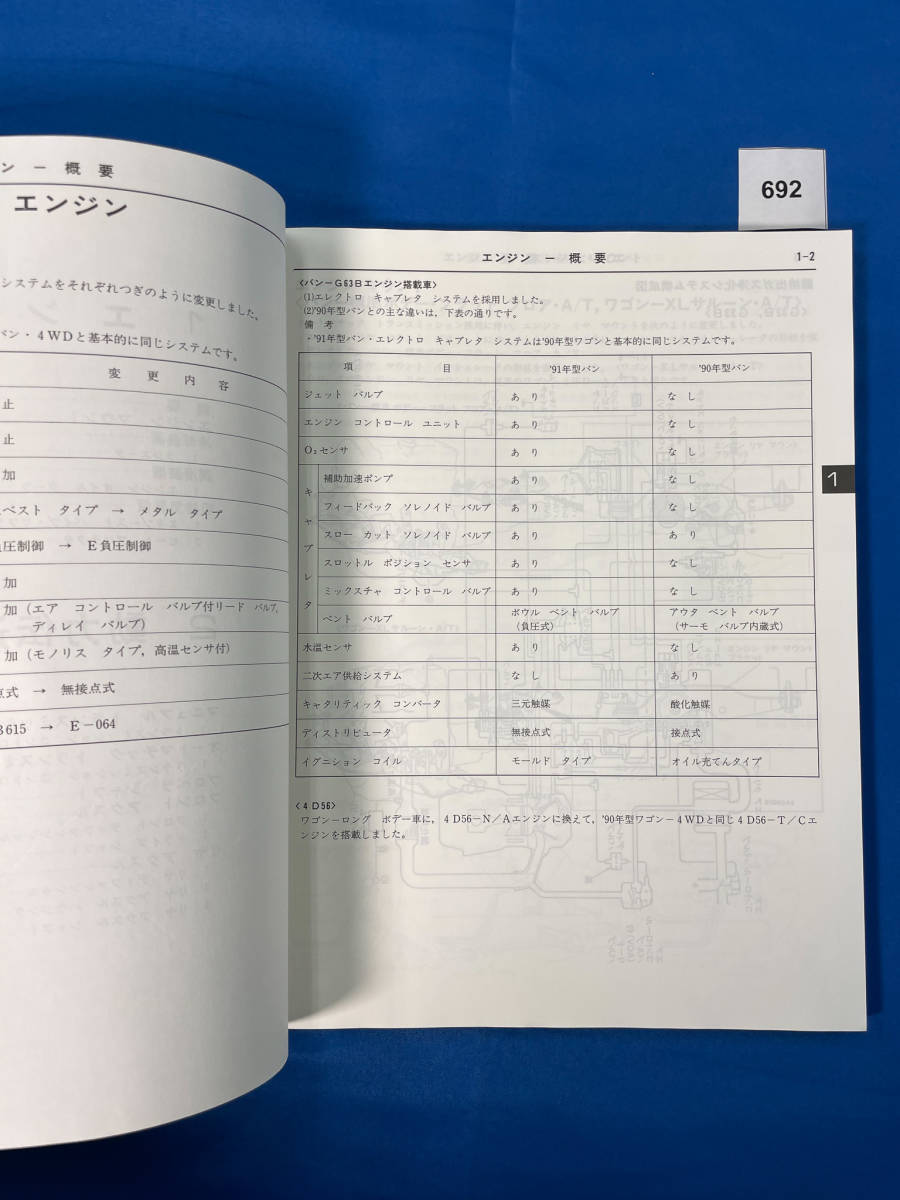 692
ン － 概 要
エンジン
システムをそれぞれつぎのように変更しました。
バン・4WDと基本的に同じシステムです。
変 更 内 容
止
止
加
ベスト タイプ → メタル タイプ
負圧制御 → E負圧制御
加
加（エア コントロール バルブ付リード バルブ,
ディレイ バルブ）
加（モノリス タイプ, 高温センサ付）
点式 → 無接点式
3615 → E－064
エンジン － 概 要 1-2
〈バン－G63Bエンジン搭載車〉
(1)エレクトロ キャブレタ システムを採用しました。
(2)'90年型バンとの主な違いは, 下表の通りです。
備 考
・'91年型バン・エレクトロ キャブレタ システムは'90年型ワゴンと基本的に同じシステムです。
項 目 '91年型バン '90年型バン
ジェット バルブ あ り な し
エンジン コントロール ユニット あ り な し
O₂センサ あ り な し
キャブレタ
補助加速ポンプ あ り な し
フィードバック ソレノイド バルブ あ り な し
スロー カット ソレノイド バルブ あ り あ り
スロットル ポジション センサ あ り な し
ミックスチャ コントロール バルブ あ り な し
ベント バルブ ボウル ベント バルブ アウタ ベント バルブ
（負圧式） （サーモ バルブ内蔵式）
水温センサ あ り な し
二次エア供給システム な し あ り
キャタリティック コンバータ 三元触媒 酸化触媒
ディストリビュータ 無接点式 接点式
イグニション コイル モールド タイプ オイル充てんタイプ
1
〈4D56〉
ワゴン－ロング ボデー車に, 4D56－N／Aエンジンに換えて, '90年型ワゴン－4WDと同じ4D56－T／Cエ
ンジンを搭載しました。